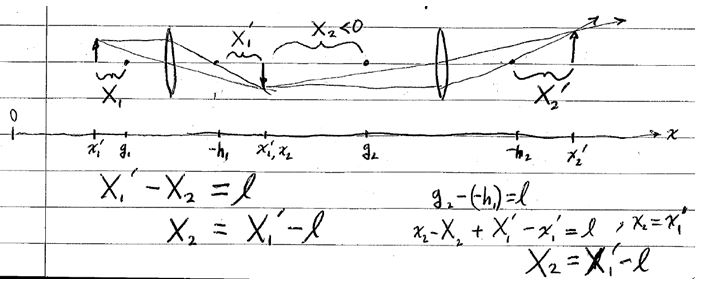 X₁′ X₂<0
X₁ X₂′
0
x₁′ g₁ -h₁ x₁′, x₂ g₂ -h₂ x₂′ x
X₁′ - X₂ = l
X₂ = X₁′ - l
g₂-(-h₁)=l
x₂-X₂ + X₁′-x₁′ = l , x₂=x₁′
X₂ = X₁′-l